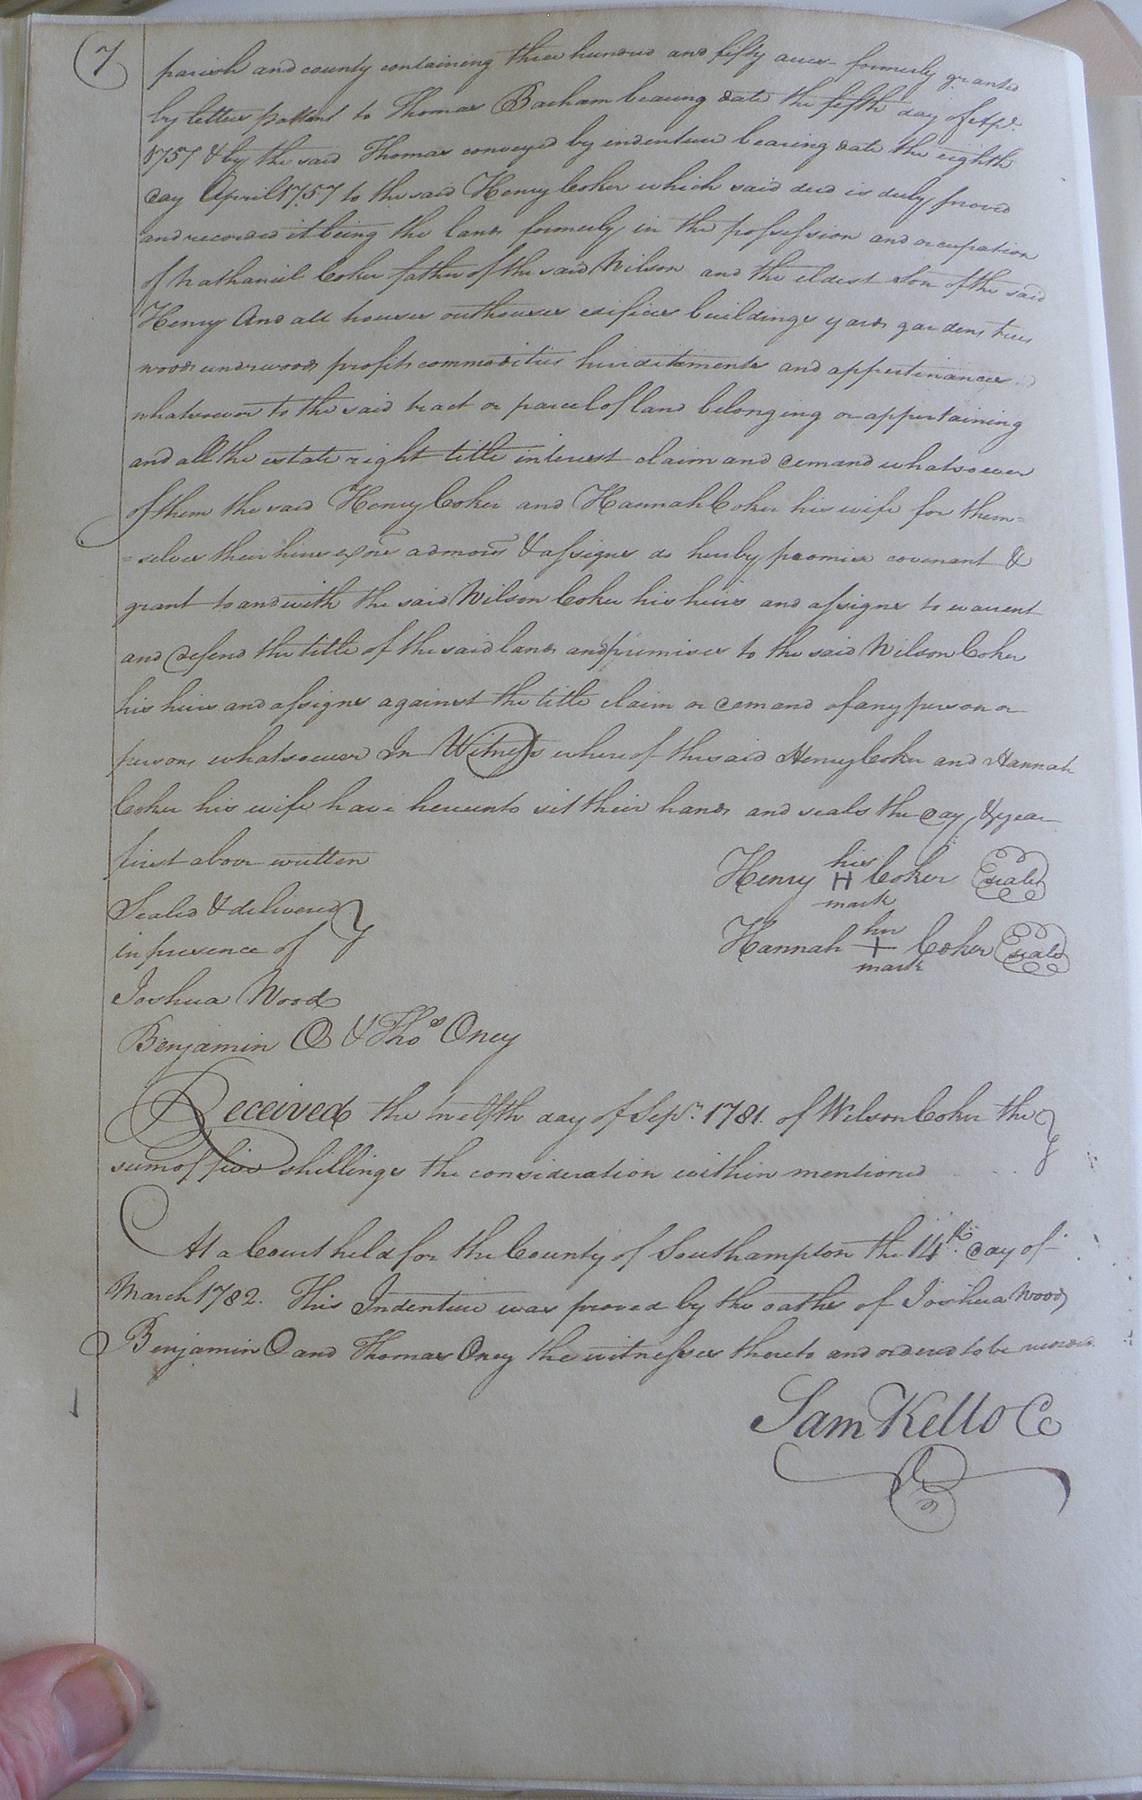 7
parish and county containing three hundred and fifty acres formerly granted
by letters pattent to Thomas Barham bearing date the fifth day of Ap.
1757 & by the said Thomas conveyed by indenture bearing date the eighth
day April 1757 to the said Henry Coker which said deed is duly proved
and recorded it being the land formerly in the possession and occupation
of Nathaniel Coker father of the said Wilson and the eldest Son of the said
Henry And all houses outhouses edifices buildings yards gardens trees
woods underwoods profits commodities heriditaments and appertinances
whatsoever to the said tract or parcel of land belonging or appertaining
and all the estate right title interest claim and demand whatsoever
of them the said Henry Coker and Hannah Coker his wife for them=
=selves their heirs exors admors & assigns do hereby promise covenant &
grant to and with the said Wilson Coker his heirs and assigns to warrent
and defend the title of the said land and premises to the said Wilson Coker
his heirs and assigns against the title claim or demand of any person or
persons whatsoever In Witness whereof the said Henry Coker and Hannah
Coker his wife have hereunto set their hands and seals the day & year
first above written
Henry his H mark Coker seal
Sealed & delivered
in presence of
Hannah her + mark Coker seal
Joshua Wood
Benjamin O & Thos Oney
Received the twelfth day of Sepr. 1781. of Wilson Coker the
sum of five shillings the consideration within mentioned
At a Court held for the County of Southampton the 14th. day of
March 1782. This Indenture was proved by the oaths of Joshua Wood
Benjamin O and Thomas Oney the witnesses thereto and ordered to be recorded.
Sam Kello Cc